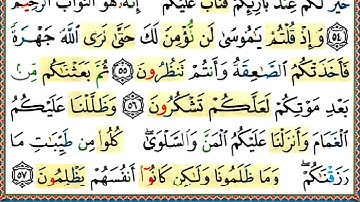 خَيْرٌ لَّكُمْ عِندَ بَارِئِكُمْ فَتَابَ عَلَيْكُمْ ۚ إِنَّهُۥ هُوَ ٱلتَّوَّابُ ٱلرَّحِيمُ
۝٥٤ وَإِذْ قُلْتُمْ يَٰمُوسَىٰ لَن نُّؤْمِنَ لَكَ حَتَّىٰ نَرَى ٱللَّهَ جَهْرَةً
فَأَخَذَتْكُمُ ٱلصَّٰعِقَةُ وَأَنتُمْ تَنظُرُونَ ۝٥٥ ثُمَّ بَعَثْنَٰكُم مِّنۢ
بَعْدِ مَوْتِكُمْ لَعَلَّكُمْ تَشْكُرُونَ ۝٥٦ وَظَلَّلْنَا عَلَيْكُمُ
ٱلْغَمَامَ وَأَنزَلْنَا عَلَيْكُمُ ٱلْمَنَّ وَٱلسَّلْوَىٰ ۖ كُلُوا۟ مِن طَيِّبَٰتِ مَا
رَزَقْنَٰكُمْ ۖ وَمَا ظَلَمُونَا وَلَٰكِن كَانُوٓا۟ أَنفُسَهُمْ يَظْلِمُونَ ۝٥٧